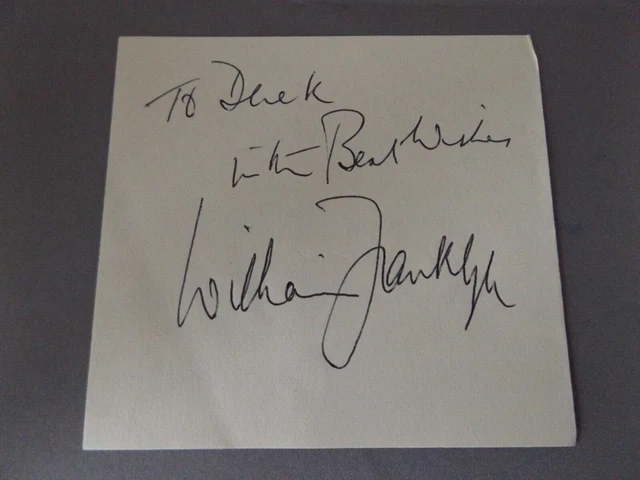 To Derek
with Best Wishes
William Franklyn